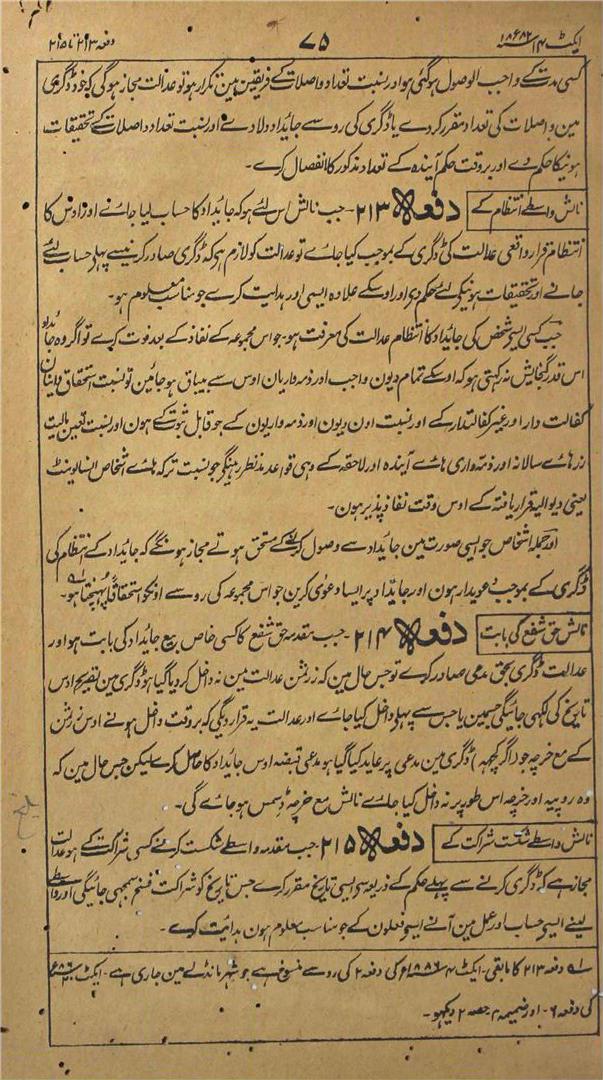 ایکٹ ۱۴ ۱۸۸۲ء
۷۵
دفعہ ۲۱۳ تا ۲۱۵
کسی مدت کے واجب الوصول ہوگئی ہو اور بنسبت تعداد واصلات کے فریقین مین تکرار ہو تو عدالت مجاز ہوگی کہ خود ڈگری
مین واصلات کی تعداد مقرر کردے یا ڈگری کی رو سے جائداد دلادے اور بنسبت تعداد واصلات کے تحقیقات
ہونیکا حکم دے اور بروقت حکم آیندہ کے تعداد مذکور کا انفصال کرے۔
نالش واسطے انتظام کے
دفعہ ۲۱۳۔ جب نالش اس لئے ہو کہ جائداد کا حساب لیا جائے اور اوس کا
انتظام قرار واقعی عدالت کی ڈگری کے بموجب کیا جائے تو عدالت کو لازم ہی کہ ڈگری صادر کرنیسے پہلے حساب لئے
جانے اور تحقیقات ہونیکے لئے حکم دی اور اوسکے علاوہ ایسی اور ہدایت کرے جو مناسب معلوم ہو۔
جب کسی ایسے شخص کی جائداد کا انتظام عدالت کی معرفت ہو۔ جو اس مجموعہ کے نفاذ کے بعد فوت کرے تو اگر وہ جائداد
اس قدر گنجایش نہ رکھتی ہو کہ اوسکے تمام دیون واجب اور ذمہ داریان اوس سے بیباق ہو جائین تو بنسبت استحقاق داینان
کفالت دار اور غیر کفالتدار کے اور بنسبت اون دیون اور ذمہ واریون کے جو قابل ثبوت کے ہون اور بنسبت تعین مالیت
زر ہاے سالانہ اور ذمہ واری ہاے آیندہ اور لاحقہ کے وہی قواعد مدنظر رہینگے جو بنسبت ترکہ ہاے اشخاص انسالونٹ
یعنی دیوالیہ قرار یافتہ کے اوس وقت نفاذ پذیر ہون۔
اور جملہ اشخاص جو ایسی صورت مین جائداد سے وصول کرنے کے مستحق ہوتے مجاز ہونگے کہ جائداد کے انتظام کی
ڈگری کے بموجب دعویدار ہون اور جائداد پر ایسا دعویٰ کرین جو اس مجموعہ کی رو سے اونکو استحقاقاً پہنچتا ہو۔
نالش حق شفع کی بابت
دفعہ ۲۱۴۔ جب مقدمہ حق شفع کا کسی خاص بیع جائداد کی بابت ہو اور
عدالت ڈگری بحق مدعی صادر کرے تو جس حال مین کہ زر ثمن عدالت مین نہ داخل کردیا گیا ہو ڈگری مین بتصریح اوس
تاریخ کی لکہی جائیگی جسمین یا جس سے پہلے داخل کیا جاے اور عدالت یہ قرار دیگی کہ بروقت داخل ہونے اوس زر ثمن
کے مع خرچہ جو (اگر کچہہ) ڈگری مین مدعی پر عاید کیا گیا ہو مدعی قبضہ اوس جائداد کا حاصل کرے لیکن جس حال مین کہ
وہ روپیہ اور خرچہ اس طور پر نہ داخل کیا جاے نالش مع خرچہ ڈسمس ہو جاے گی۔
نالش واسطے شکست شراکت کے
دفعہ ۲۱۵۔ جب مقدمہ واسطے شکست کرنے کسی شراکت کے ہو عدالت
مجاز ہے کہ ڈگری کرنے سے پہلے حکم کے ذریعہ سے ایسی تاریخ مقرر کرے جس تاریخ کو شراکت فسخ سمجہی جائیگی اور واسطے
لینے ایسے حساب اور عمل مین آنے ایسے فعلون کے جو مناسب معلوم ہون ہدایت کرے۔
دفعہ ۲۱۳ کا مابقی۔ ایکٹ ۱۸۸۶ء کی دفعہ ۲ کی رو سے منسوخ ہے جو شہر مانڈلے مین جاری ہے۔ ایکٹ
کی دفعہ ۶۔ اور ضمیمہ ۲ حصہ ۲ دیکہو۔